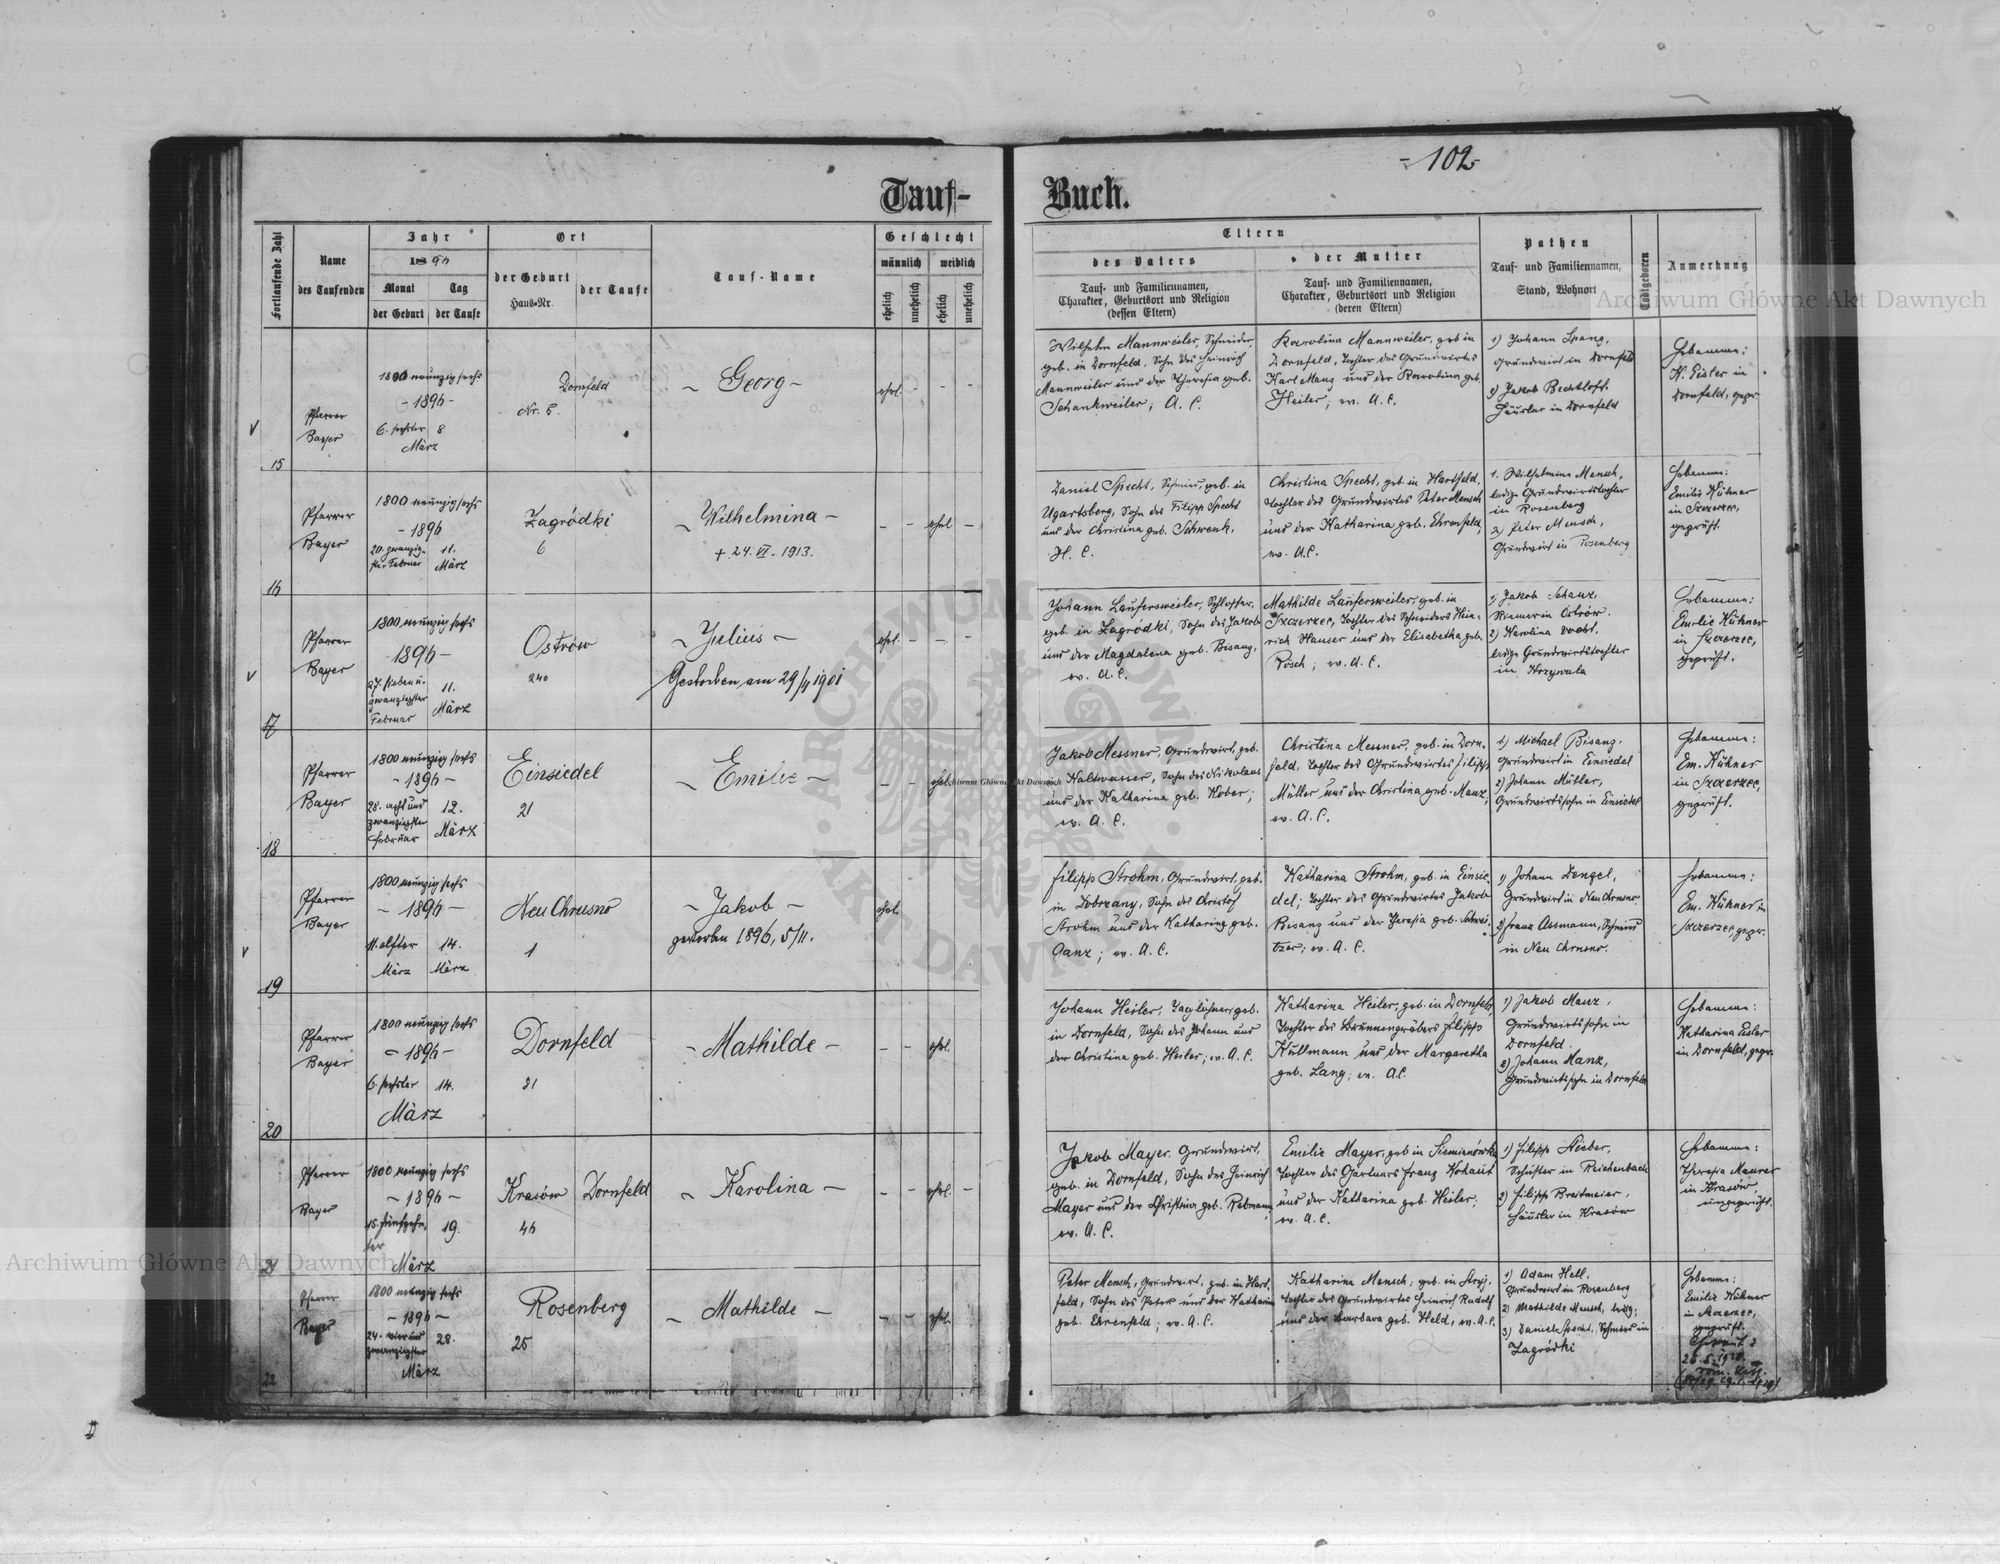 - 102 -
Tauf-
Buch.
Fortlaufende Zahl
Name
des Taufenden
Jahr
1896
Monat
der Geburt
Tag
der Taufe
Ort
der Geburt
Haus-Nr.
der Taufe
Tauf-Name
Geschlecht
männlich
weiblich
ehelich
unehelich
ehelich
unehelich
Eltern
des Vaters
Tauf- und Familiennamen,
Charakter, Geburtsort und Religion
(dessen Eltern)
der Mutter
Tauf- und Familiennamen,
Charakter, Geburtsort und Religion
(deren Eltern)
Pathen
Tauf- und Familiennamen,
Stand, Wohnort
Todtgeboren
Anmerkung
15
Pfarrer
Bayer
1800 neunzig sechs
- 1896 -
6. sechster 8
März
Dornfeld
Nr. 5.
- Georg -
ehel. - - -
Wilhelm Mannweiler, Schneider,
geb. in Dornfeld, Sohn des Heinrich
Mannweiler und der Theresia geb.
Schankweiler; A. C.
Karolina Mannweiler, geb in
Dornfeld, Tochter des Grundwirtes
Karl Manz und der Karolina geb.
Heiler; ev. A. C.
1) Johann Spang,
Grundwirt in Dornfeld
2) Jakob Bechtloff
Häusler in Dornfeld
Hebamme:
K. Eisler in
Dornfeld, gepr.
16
Pfarrer
Bayer
1800 neunzig sechs
- 1896
20. zwanzig-
ster Februar
11.
März
Zagródki
6
- Wilhelmina -
+ 24. VI. 1913.
- - ehel -
Daniel Specht, Schmied, geb. in
Ugartsberg, Sohn des Filipp Specht
und der Christina geb. Schwenk,
H. C.
Christina Specht, geb. in Hartfeld,
Tochter des Grundwirtes Peter Mensch
und der Katharina geb. Ehrenfeld,
ev. A.C.
1. Wilhelmine Mensch,
ledige Grundwirtstochter
in Rosenberg
2) Peter Mensch,
Grundwirt in Rosenberg
Hebamme:
Emilie Kühner
in Szczerzec,
geprüft.
17
Pfarrer
Bayer
1800 neunzig sechs
1896 -
27. sieben u.
zwanzigster
Februar
11.
März
Ostrów
240
- Julius -
Gestorben am 29/4 1901
ehel. - - -
Johann Laufersweiler, Schlosser,
geb. in Zagródki, Sohn des Jakob
und der Magdalena geb. Bisanz,
ev. A. C.
Mathilde Laufersweiler, geb. in
Szczerzec, Tochter des Schneiders Hein-
rich Hauser und der Elisabetha geb.
Rosch; ev. A. C.
1) Jakob Schanz,
Riemer in Ostrów.
2) Karolina
ledige Grundwirtstochter
in Krzywula
Hebamme:
Emilie Kühner
in Szczerzec,
geprüft.
18
Pfarrer
Bayer
1800 neunzig sechs
- 1896 -
28. acht und
zwanzigster
Februar
12.
März
Einsiedel
21
- Emilie -
- - ehel.
Jakob Messner, Grundwirt, geb.
in Kaltwasser, Sohn des Nikolaus
und der Katharina geb. Kober;
ev. A. C.
Christina Messner, geb. in Dorn-
feld, Tochter des Grundwirtes Filipp
Müller und der Christina geb. Manz;
ev. A. C.
1) Michael Bisanz,
Grundwirt in Einsiedel
2) Johann Müller,
Grundwirtssohn in Einsiedel
Hebamme:
Em. Kühner
in Szczerzec,
geprüft.
19
Pfarrer
Bayer
1800 neunzig sechs
- 1896 -
11. elfter 14.
März März
Neu Chrusno
1
- Jakob -
gestorben 1896, 5/11.
ehel.
Filipp Strohm, Grundwirt, geb.
in Dobrzany, Sohn des Christof
Strohm und der Katharina geb.
Ganz; ev. A. C.
Katharina Strohm, geb. in Einsie-
del; Tochter des Grundwirtes Jakob
Bisanz und der Theresia geb. Schwei-
tzer; ev. A. C.
1) Johann Dengel,
Grundwirt in Neu Chrusno
2) Franz Assmann, Schmied
in Neu Chrusno.
Hebamme:
Em. Kühner in
Szczerzec, gepr.
20
Pfarrer
Bayer
1800 neunzig sechs
- 1896 -
6. sechster 14.
März
Dornfeld
31
- Mathilde -
- - ehel.
Johann Heiler, Taglöhner, geb.
in Dornfeld, Sohn des Johann und
der Christina geb. Heiler; ev. A. C.
Katharina Heiler, geb. in Dornfeld,
Tochter des Brunnengräbers Filipp
Kullmann und der Margaretha
geb. Lang; ev. A.C.
1) Jakob Manz,
Grundwirtssohn in
Dornfeld.
2) Johann Manz,
Grundwirtssohn in Dornfeld
Hebamme:
Katharina Eisler
in Dornfeld, gepr.
21
Pfarrer
Bayer
1800 neunzig sechs
- 1896 -
15. fünfzehn-
ter
19.
März
Krasów Dornfeld
46
- Karolina -
- - ehel. -
Jakob Mayer, Grundwirt,
geb. in Dornfeld, Sohn des Heinrich
Mayer und der Christina geb. Rebmann
ev. A. C.
Emilie Mayer, geb in Siemianówka
Tochter des Gärtners Franz Kohaut
und der Katharina geb. Heiler;
ev. A. C.
1) Filipp Stieber,
Schuster in Reichenbach
2) Filipp Breitmeier,
Häusler in Krasów
Hebamme:
Theresia Maurer
in Krasów,
ungeprüft.
22
Pfarrer
Bayer
1800 neunzig sechs
- 1896 -
24. vier und
zwanzigster
28.
März
Rosenberg
25
- Mathilde -
- - ehel.
Peter Mensch, Grundwirt, geb. in Hart-
feld, Sohn des Peter und der Katharina
geb. Ehrenfeld; ev. A. C.
Katharina Mensch, geb. in Stryj,
Tochter des Grundwirtes Heinrich Rudolf
und der Barbara geb. Held, ev. A. C.
1) Adam Hell,
Grundwirt in Rosenberg
2) Mathilde Mensch, ledig;
3) Daniel Specht, Schmied in
Zagródki
Hebamme:
Emilie Kühner
in Szczerzec,
geprüft.
Archiwum Główne Akt Dawnych
Archiwum Główne Akt Dawnych
Archiwum Główne Akt Dawnych
ARCHIWUM GŁÓWNE AKT DAWNYCH